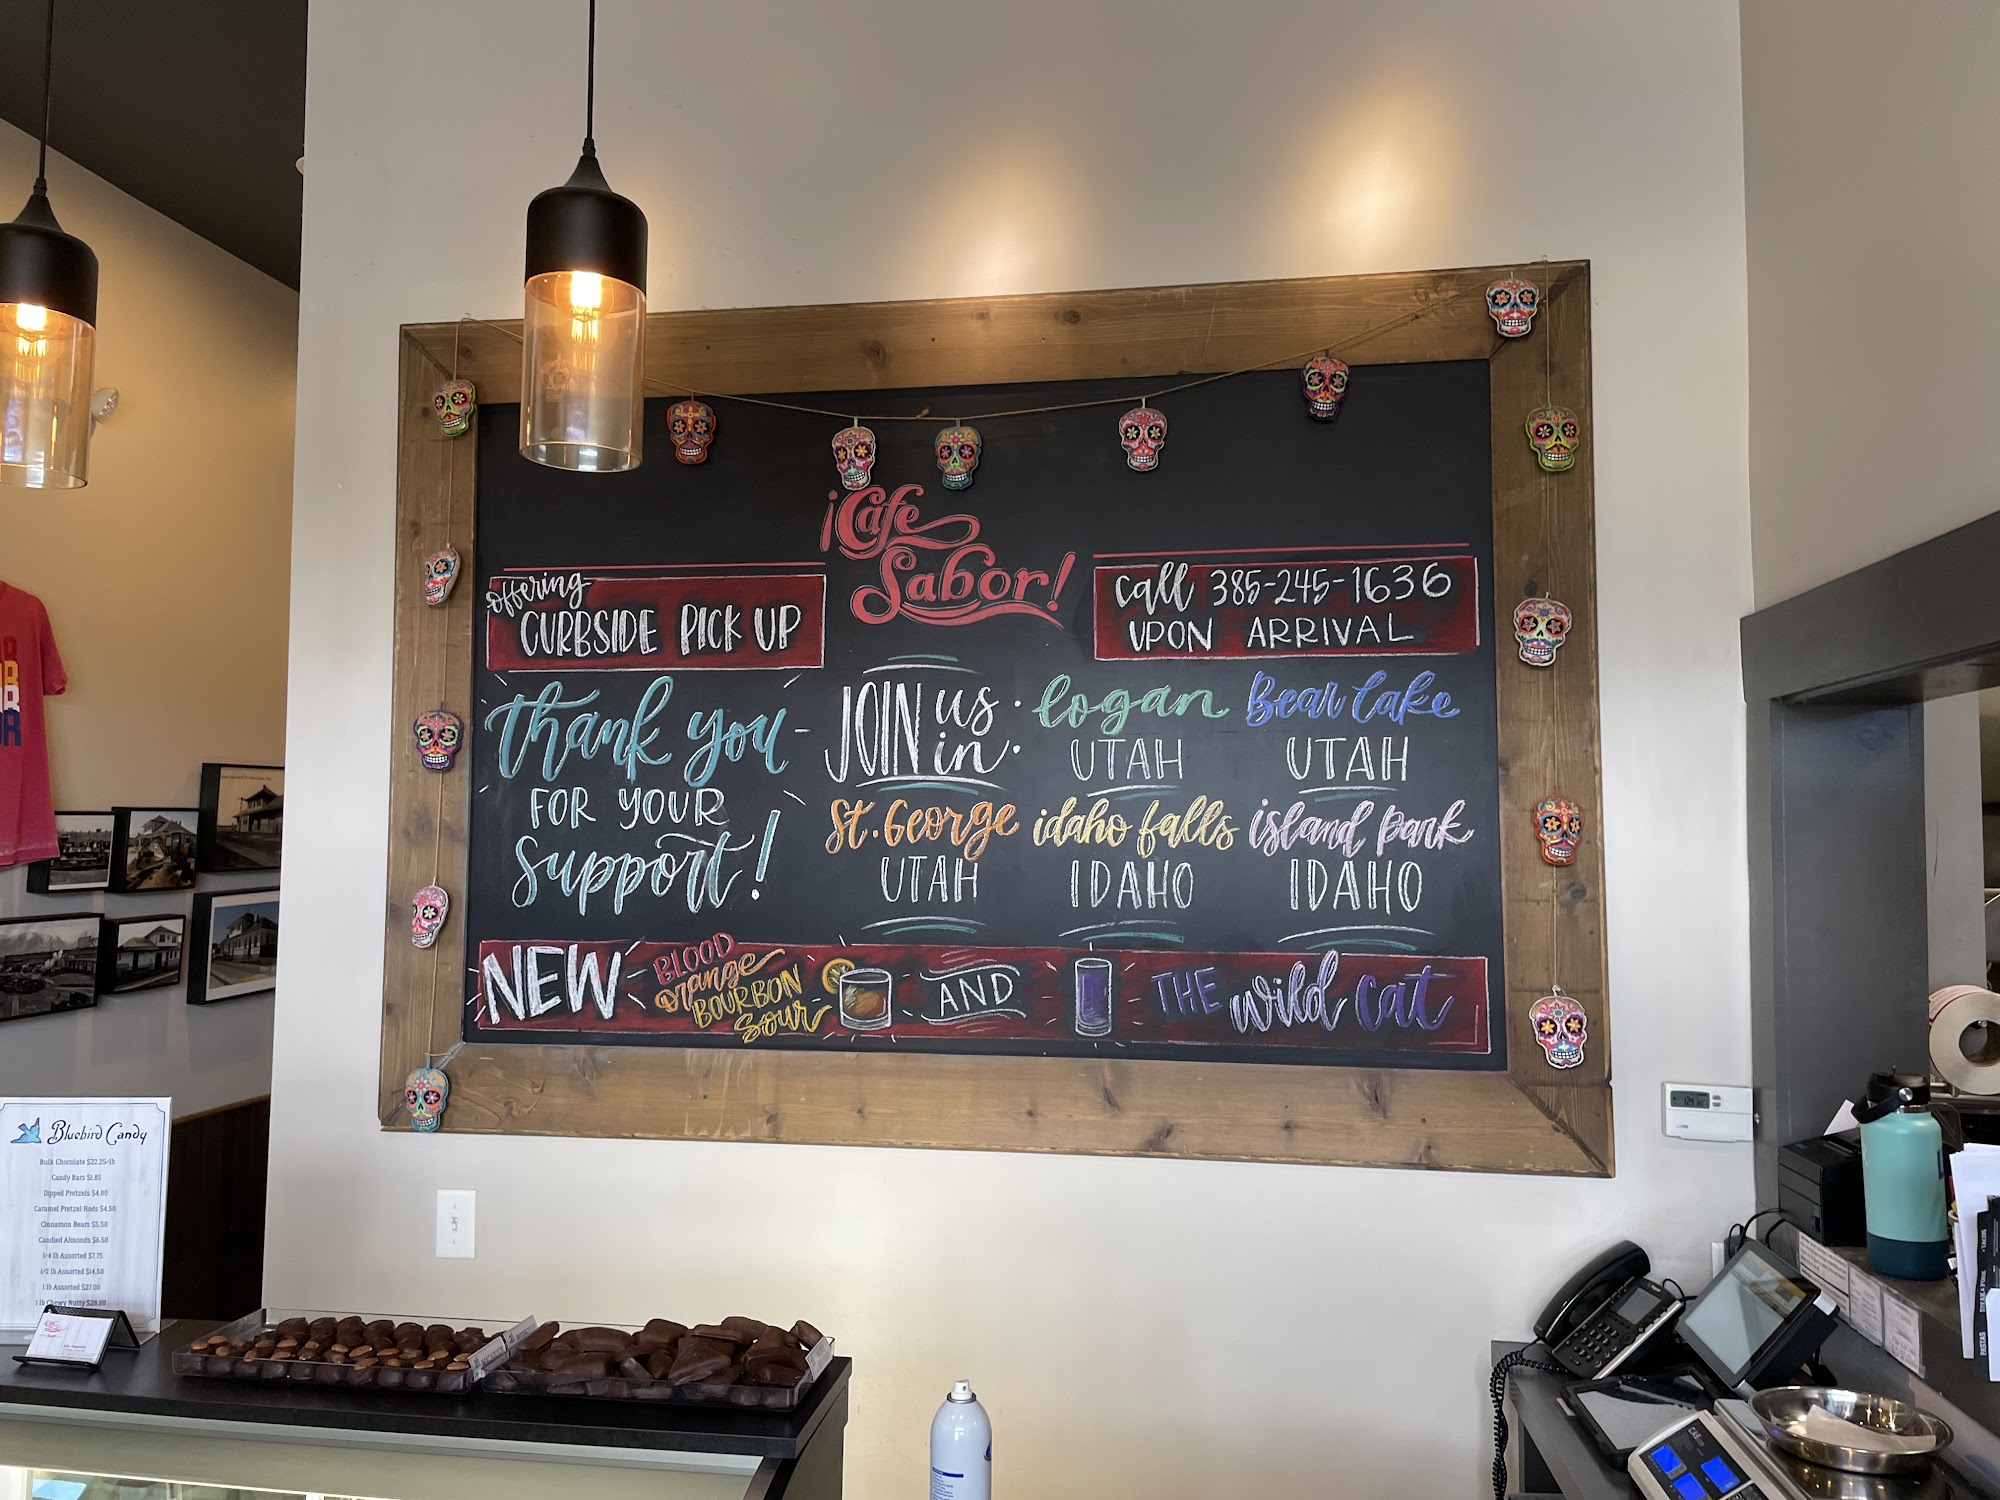 ¡Cafe
Sabor!
offering
CURBSIDE PICK UP
call 385-245-1636
UPON ARRIVAL
thank you
FOR YOUR
support!
JOIN us
in
logan
UTAH
Bear Lake
UTAH
St. George
UTAH
idaho falls
IDAHO
island park
IDAHO
NEW
BLOOD
orange
BOURBON
sour
AND
THE wild cat
Bluebird Candy
Bulk Chocolate $22.25/lb
Candy Bars $1.85
Dipped Pretzels $4.00
Caramel Pretzel Rods $4.50
Cinnamon Bears $5.50
Candied Almonds $6.50
1/4 lb Assorted $7.75
1/2 lb Assorted $14.50
1 lb Assorted $27.00
1 lb Chewy Nutty $28.00
STEAK & PORK
PASTAS
CAS